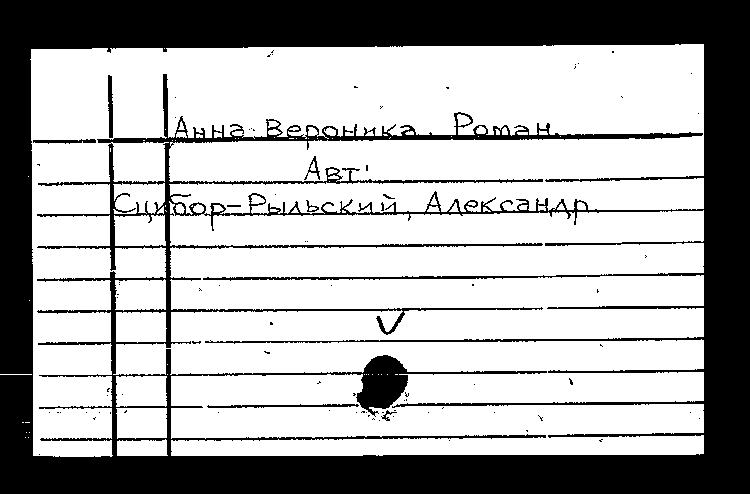 Анна-Вероника. Роман.
Авт.
Сцибор-Рыльский, Александр.